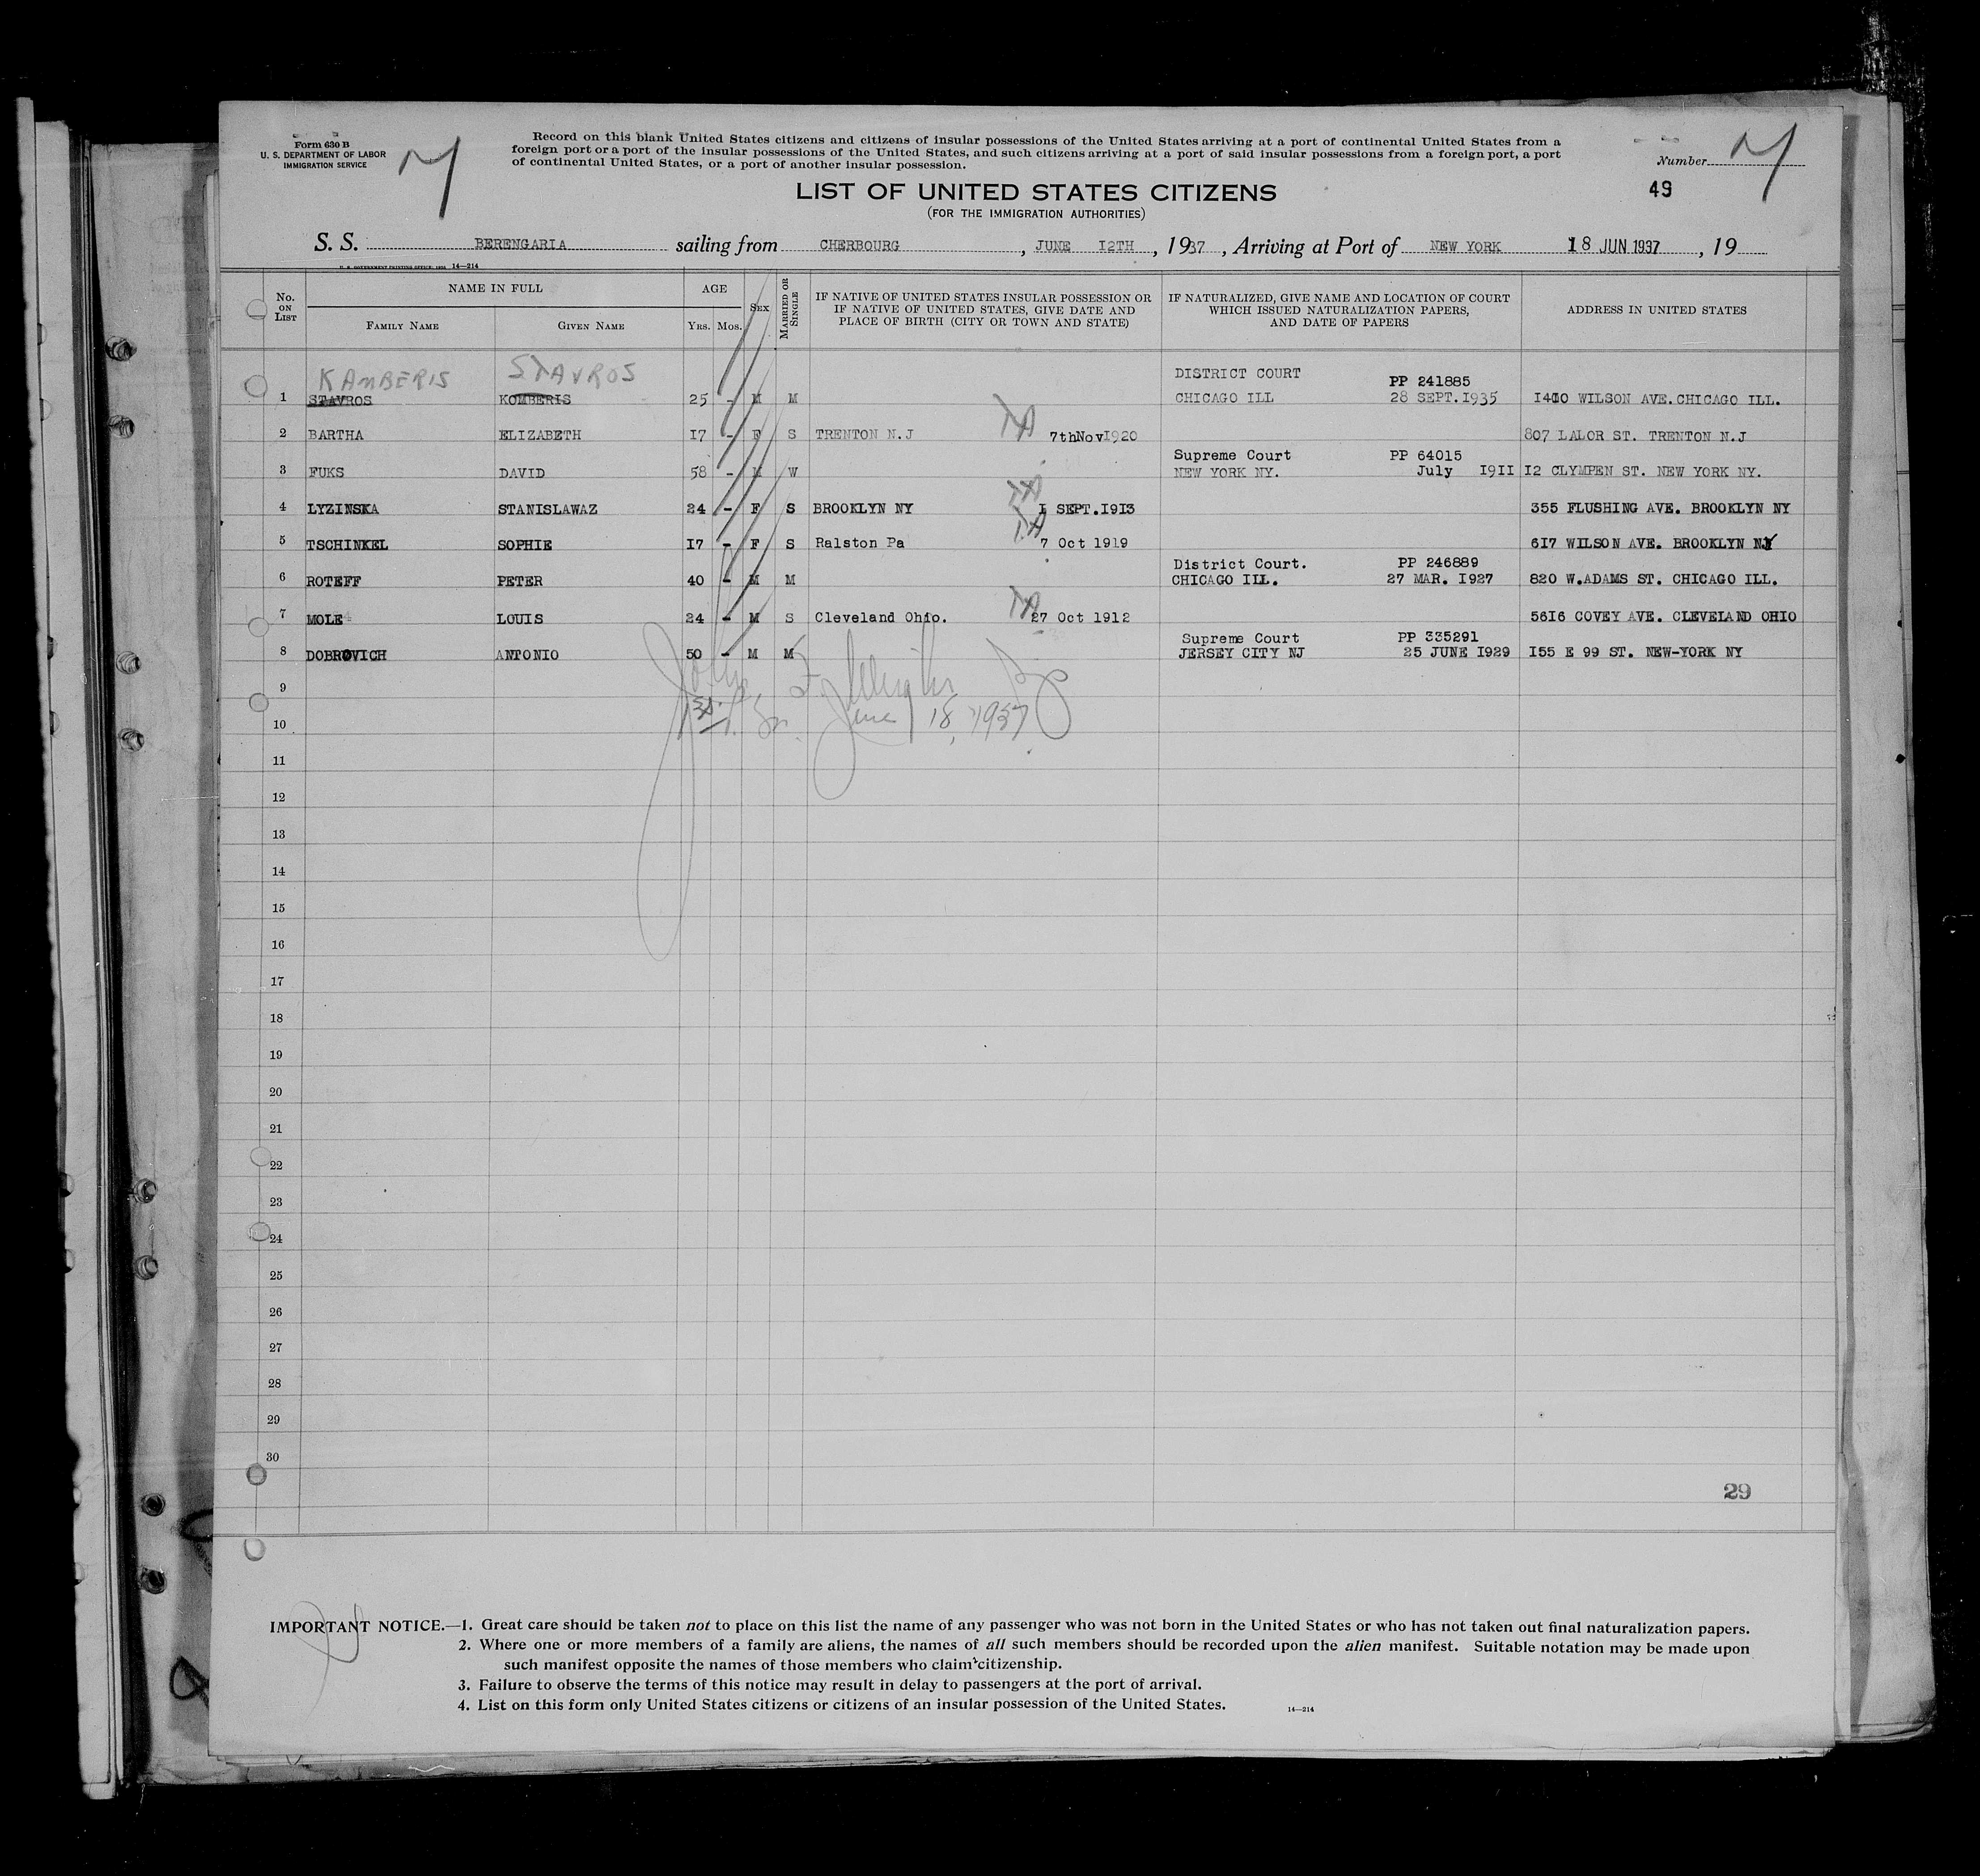 Form 630 B
U. S. DEPARTMENT OF LABOR
IMMIGRATION SERVICE
Record on this blank United States citizens and citizens of insular possessions of the United States arriving at a port of continental United States from a
foreign port or a port of the insular possessions of the United States, and such citizens arriving at a port of said insular possessions from a foreign port, a port
of continental United States, or a port of another insular possession.
Number
49
LIST OF UNITED STATES CITIZENS
(FOR THE IMMIGRATION AUTHORITIES)
S. S. BERENGARIA sailing from CHERBOURG, JUNE I2TH, 1937, Arriving at Port of NEW YORK 18 JUN 1937, 19
14—214
No. ON LIST
NAME IN FULL
FAMILY NAME GIVEN NAME
AGE
YRS. MOS.
SEX
MARRIED OR SINGLE
IF NATIVE OF UNITED STATES INSULAR POSSESSION OR
IF NATIVE OF UNITED STATES, GIVE DATE AND
PLACE OF BIRTH (CITY OR TOWN AND STATE)
IF NATURALIZED, GIVE NAME AND LOCATION OF COURT
WHICH ISSUED NATURALIZATION PAPERS,
AND DATE OF PAPERS
ADDRESS IN UNITED STATES
KAMBERIS STAVROS
DISTRICT COURT PP 241885
1 STAVROS KOMBERIS 25 - M M CHICAGO ILL 28 SEPT.I935 WILSON AVE.CHICAGO ILL.
2 BARTHA ELIZABETH I7 - F S TRENTON N.J 7thNovI920 807 LALOR ST. TRENTON N.J
Supreme Court PP 64015
3 FUKS DAVID 58 - M W NEW YORK NY. July I9II I2 CLYMPEN ST. NEW YORK NY.
4 LYZINSKA STANISLAWAZ 24 - F S BROOKLYN NY I SEPT.I9I3 355 FLUSHING AVE. BROOKLYN NY
5 TSCHINKEL SOPHIE I7 - F S Ralston Pa 7 Oct 1919 6I7 WILSON AVE. BROOKLYN NY
District Court. PP 246889
6 ROTEFF PETER 40 - M M CHICAGO ILL. 27 MAR. I927 820 W.ADAMS ST. CHICAGO ILL.
7 MOLE LOUIS 24 - M S Cleveland Ohio. 27 Oct 1912 56I6 COVEY AVE. CLEVELAND OHIO
Supreme Court PP 335291
8 DOBROVICH ANTONIO 50 - M M JERSEY CITY NJ 25 JUNE I929 I55 E 99 ST. NEW-YORK NY
9
June 18, 1937
10
11
12
13
14
15
16
17
18
19
20
21
22
23
24
25
26
27
28
29
30
29
IMPORTANT NOTICE.—1. Great care should be taken not to place on this list the name of any passenger who was not born in the United States or who has not taken out final naturalization papers.
2. Where one or more members of a family are aliens, the names of all such members should be recorded upon the alien manifest. Suitable notation may be made upon
such manifest opposite the names of those members who claim citizenship.
3. Failure to observe the terms of this notice may result in delay to passengers at the port of arrival.
4. List on this form only United States citizens or citizens of an insular possession of the United States.
14—214